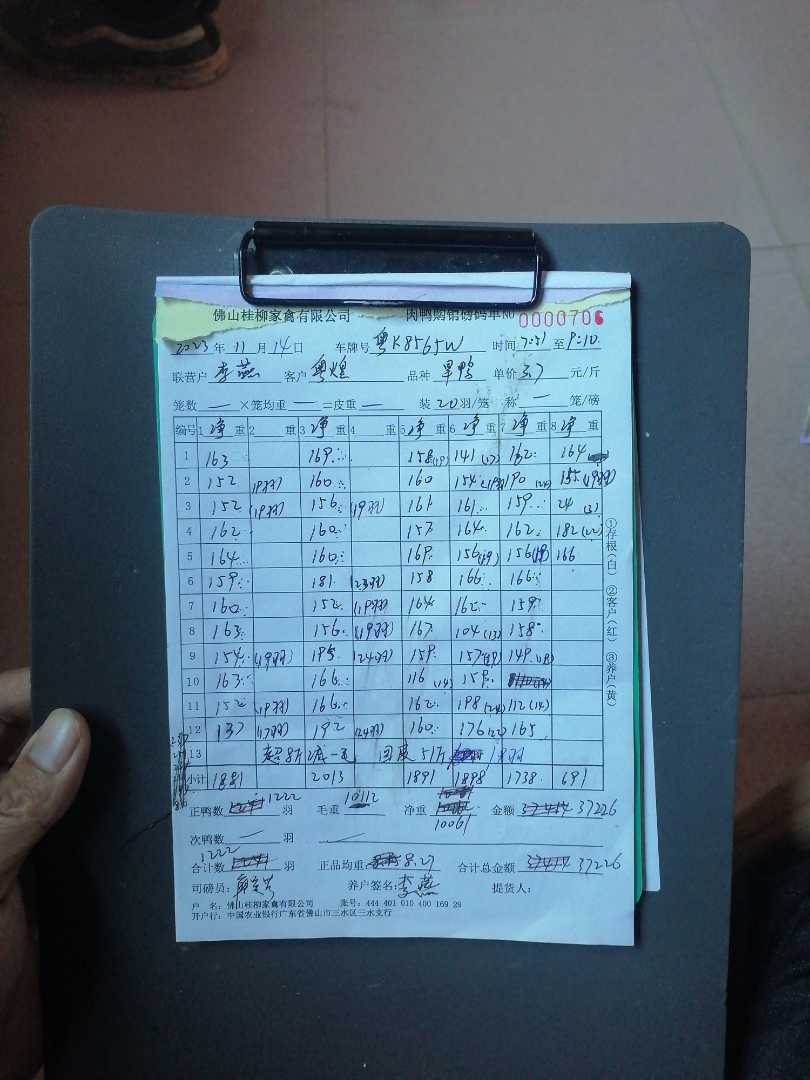 佛山桂柳家禽有限公司 肉鸭购销磅码单NO 0000706
2023年 11月 14日 车牌号 粤K8565W 时间 7:51 至 9:10
联营户 李燕 客户 粤煌 品种 旱鸭 单价 3.7 元/斤
笼数 一 ×笼均重 一 =皮重 一 装 20 羽/笼 称 一 笼/磅
编号 1 净 重 2 重 3 净 重 4 重 5 净 重 6 净 重 7 净 重 8 净 重
1 163 169 158(19) 141(17) 162 164
2 152 (19羽) 160 160 154(19羽) 190 155(19羽)
3 152 (19羽) 156 (19羽) 161 161 159 24(3)
4 162 160 157 164 162 182
5 164 160 169 156(19) 156(19) 166
6 159 181 (23羽) 158 166 166
7 160 152 (19羽) 164 162 159
8 163 156 (19羽) 167 104(13) 158
9 154 (19羽) 195 (24羽) 159 157(19) 149(18)
10 163 166 116(14) 159
11 152 (19羽) 166 162 198(24) 112(14)
12 137 (17羽) 192 (24羽) 160 176 165
13 51斤 19羽
小计 1881 2013 1891 1898 1738 691
正鸭数 1222 羽 毛重 10112 净重 10061 金额 37226
次鸭数 一 羽
合计数 1222 羽 正品均重: 8.27 合计总金额 37226
司磅员: 养户签名: 李燕 提货人:
户 名: 佛山桂柳家禽有限公司 账号: 444 401 010 400 169 29
开户行: 中国农业银行广东省佛山市三水区三水支行
①存根(白) ②客户(红) ③养户(黄)